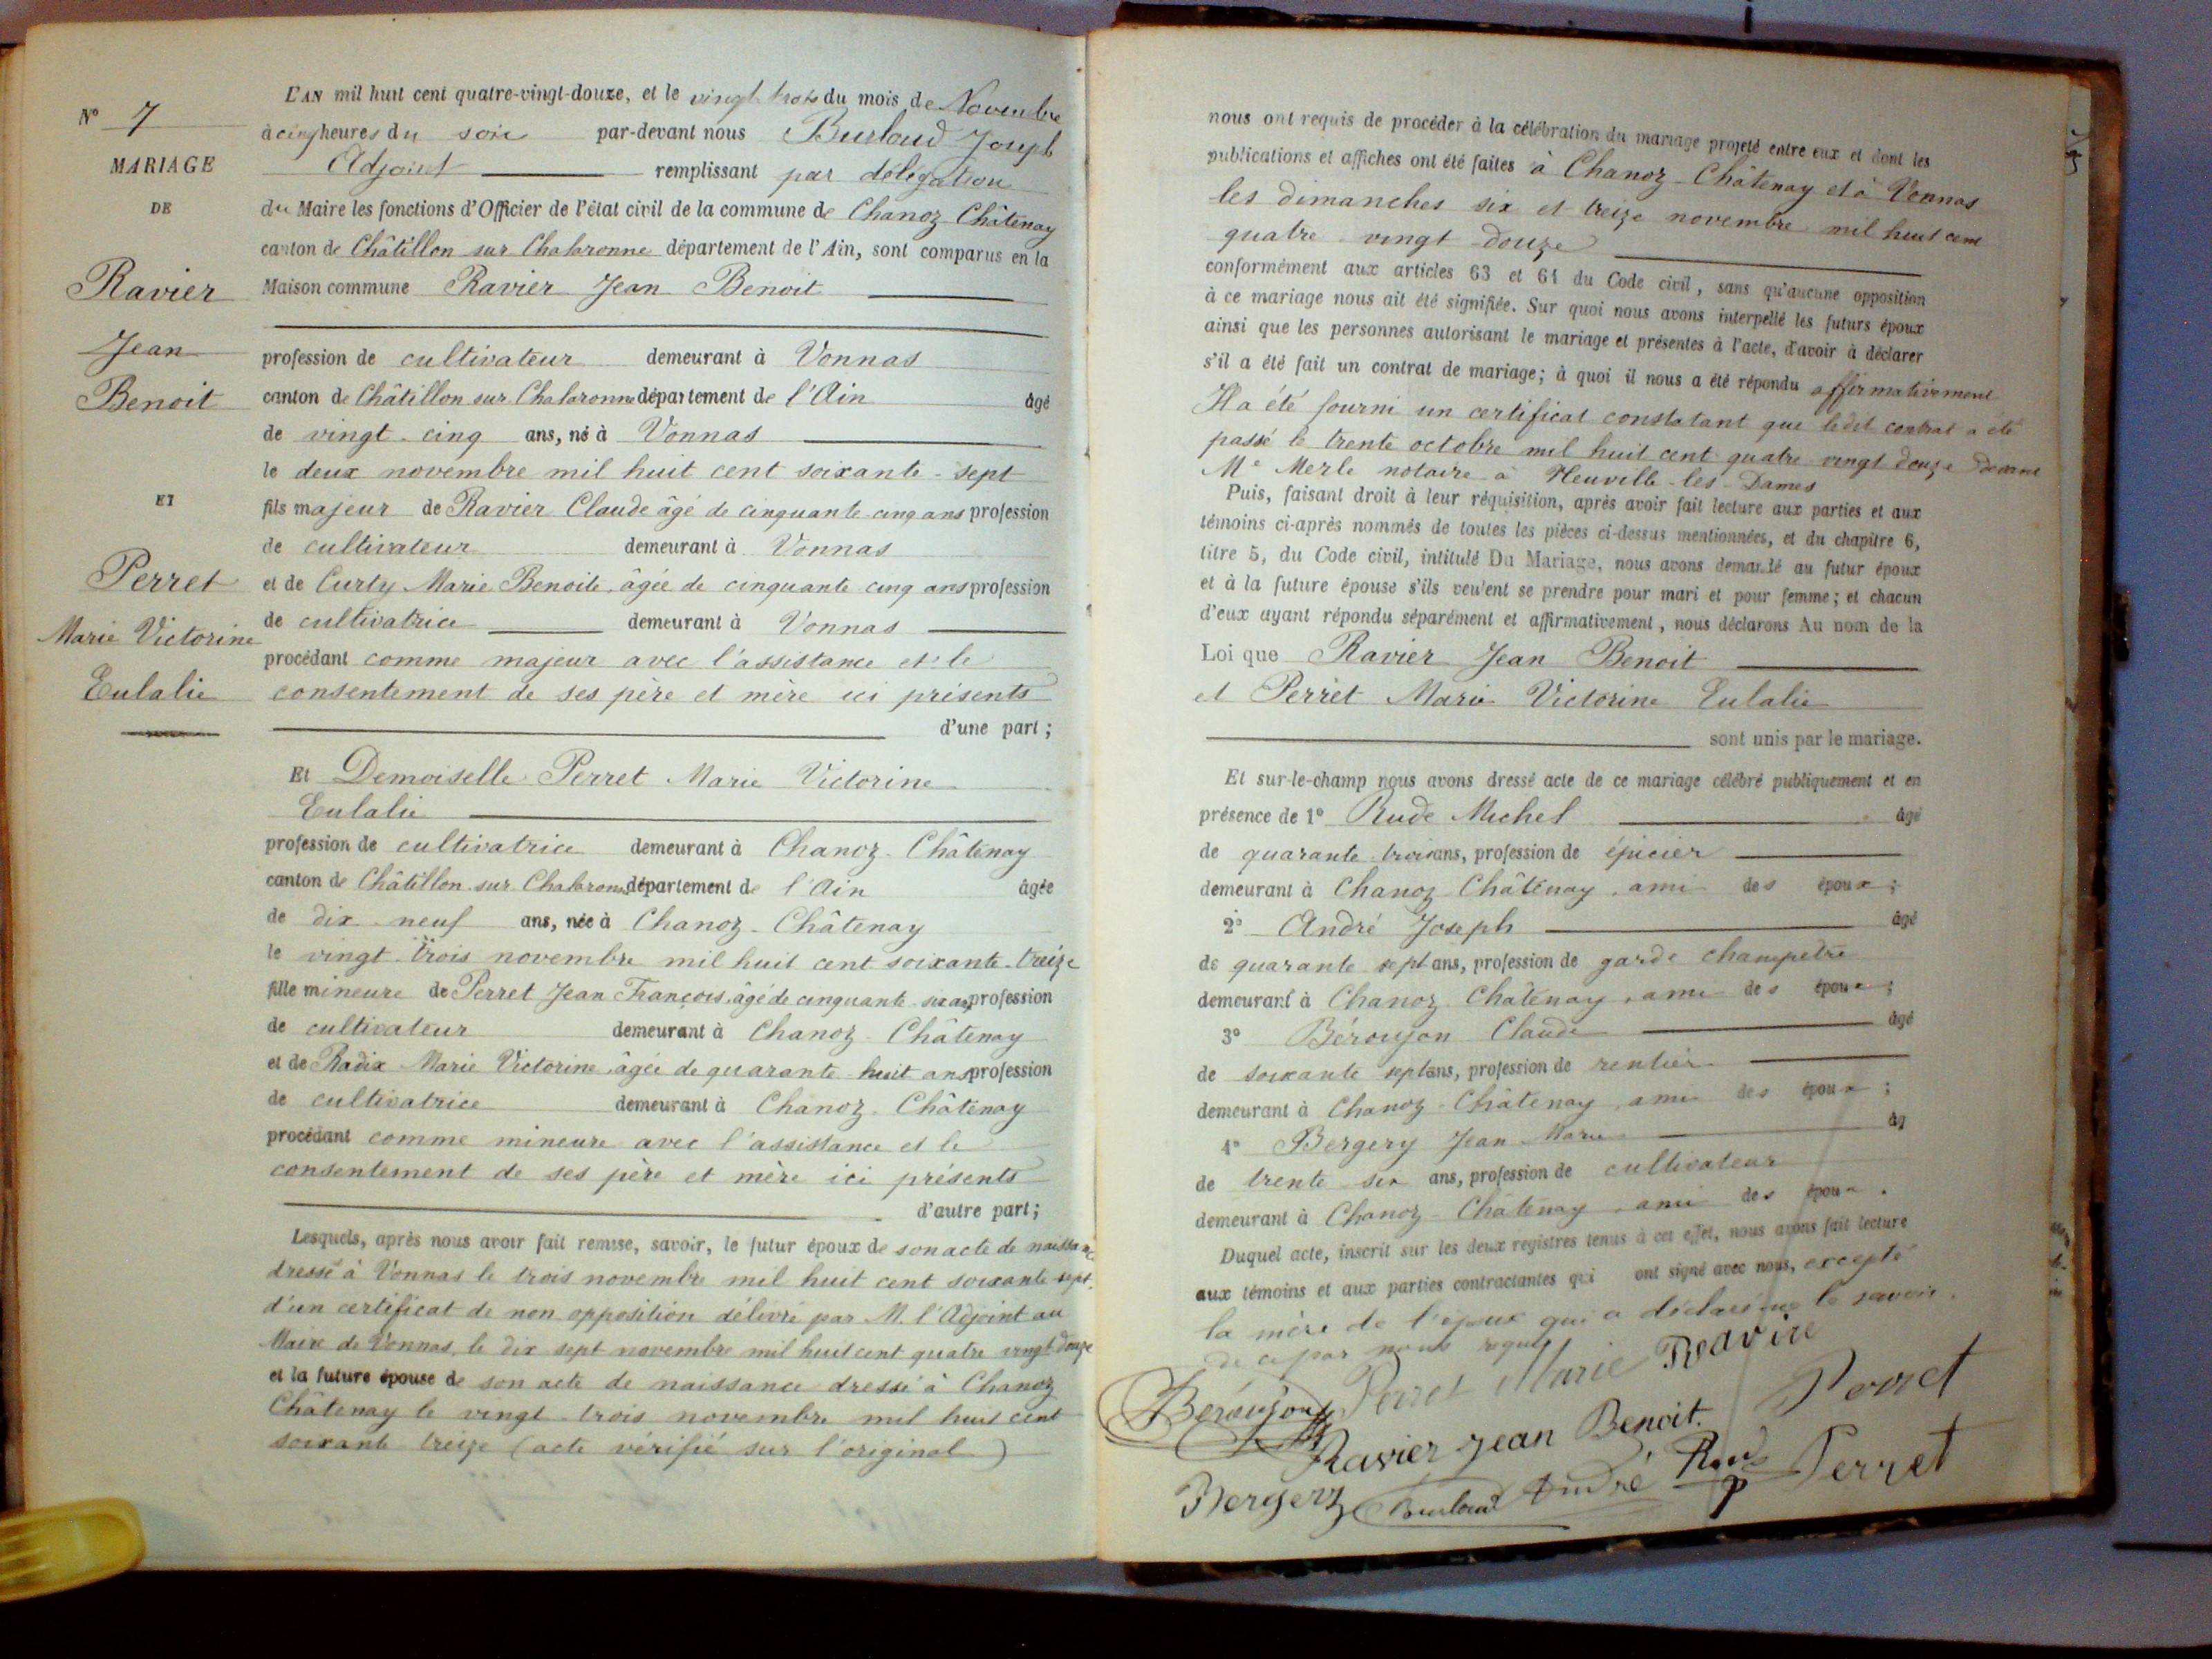 N° 7
MARIAGE
DE
Ravier
Jean
Benoit
ET
Perret
Marie Victorine
Eulalie
L'AN mil huit cent quatre-vingt-douze, et le vingt trois du mois de Novembre
à cinq heures du soir par-devant nous Burloud Joseph
Adjoint remplissant par délégation
du Maire les fonctions d'Officier de l'état civil de la commune de Chanoz-Châtenay
canton de Châtillon sur Chalaronne département de l'Ain, sont comparus en la
Maison commune Ravier Jean Benoit
profession de cultivateur demeurant à Vonnas
canton de Châtillon sur Chalaronne département de l'Ain âgé
de vingt-cinq ans, né à Vonnas
le deux novembre mil huit cent soixante-sept
fils majeur de Ravier Claude âgé de cinquante cinq ans profession
de cultivateur demeurant à Vonnas
et de Curty Marie Benoite, âgée de cinquante cinq ans profession
de cultivatrice demeurant à Vonnas
procédant comme majeur avec l'assistance et le
consentement de ses père et mère ici présents
d'une part ;
Et Demoiselle Perret Marie Victorine
Eulalie
profession de cultivatrice demeurant à Chanoz-Châtenay
canton de Châtillon-sur-Chalaronne département de l'Ain âgée
de dix-neuf ans, née à Chanoz-Châtenay
le vingt-trois novembre mil huit cent soixante-treize
fille mineure de Perret Jean François, âgé de cinquante-six ans profession
de cultivateur demeurant à Chanoz-Châtenay
et de Radix Marie Victorine, âgée de quarante-huit ans profession
de cultivatrice demeurant à Chanoz-Châtenay
procédant comme mineure avec l'assistance et le
consentement de ses père et mère ici présents
d'autre part ;
Lesquels, après nous avoir fait remise, savoir, le futur époux de son acte de naissance
dressé à Vonnas le trois novembre mil huit cent soixante sept.
d'un certificat de non opposition délivré par M. l'Adjoint au
Maire de Vonnas, le dix sept novembre mil huit cent quatre vingt douze
et la future épouse de son acte de naissance dressé à Chanoz
Châtenay le vingt-trois novembre mil huit cent
soixante-treize (acte vérifié sur l'original)
nous ont requis de procéder à la célébration du mariage projeté entre eux et dont les
publications et affiches ont été faites à Chanoz-Châtenay et à Vonnas
les dimanches six et treize novembre mil huit cent
quatre-vingt-douze
conformément aux articles 63 et 64 du Code civil, sans qu'aucune opposition
à ce mariage nous ait été signifiée. Sur quoi nous avons interpellé les futurs époux
ainsi que les personnes autorisant le mariage et présentes à l'acte, d'avoir à déclarer
s'il a été fait un contrat de mariage ; à quoi il nous a été répondu affirmativement
Il a été fourni un certificat constatant que ledit contrat a été
passé le trente octobre mil huit cent quatre vingt douze devant
Me Merle notaire à Neuville-les-Dames
Puis, faisant droit à leur réquisition, après avoir fait lecture aux parties et aux
témoins ci-après nommés de toutes les pièces ci-dessus mentionnées, et du chapitre 6,
titre 5, du Code civil, intitulé Du Mariage, nous avons demandé au futur époux
et à la future épouse s'ils veulent se prendre pour mari et pour femme ; et chacun
d'eux ayant répondu séparément et affirmativement, nous déclarons Au nom de la
Loi que Ravier Jean Benoit
et Perret Marie Victorine Eulalie
sont unis par le mariage.
Et sur-le-champ nous avons dressé acte de ce mariage célébré publiquement et en
présence de 1° Rude Michel âgé
de quarante-trois ans, profession de épicier
demeurant à Chanoz-Châtenay, ami des époux ;
2° André Joseph âgé
de quarante sept ans, profession de garde champêtre
demeurant à Chanoz-Châtenay, ami des époux ;
3° Béroujon Claude âgé
de soixante sept ans, profession de rentier
demeurant à Chanoz-Châtenay, ami des époux ;
4° Bergery Jean Marie âg
de trente-six ans, profession de cultivateur
demeurant à Chanoz-Châtenay, ami des époux.
Duquel acte, inscrit sur les deux registres tenus à cet effet, nous avons fait lecture
aux témoins et aux parties contractantes qui ont signé avec nous, excepté
la mère de l'époux qui a déclaré ne le savoir.
de ce par nous requis
Béroujon Perret Marie Ravier
Ravier Jean Benoit. Perret
Bergery Burloud André Rude Perret